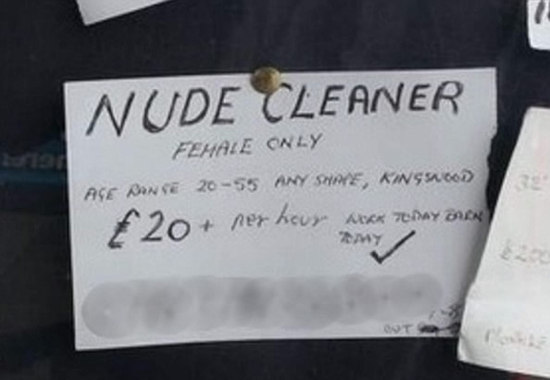 NUDE CLEANER
FEMALE ONLY
AGE RANGE 20-55 ANY SHAPE, KINGSWOOD
£20+ per hour WORK TODAY EARN
TODAY ✓
OUT
32"
£200